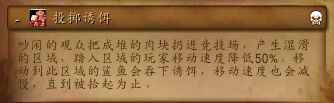 投掷诱饵
吵闹的观众把成堆的肉块扔进竞技场，产生湿滑
的区域，踏入区域的玩家移动速度降低50%。移
动到此区域的鲨鱼会吞下诱饵，移动速度也会减
慢，直到被拾起为止。